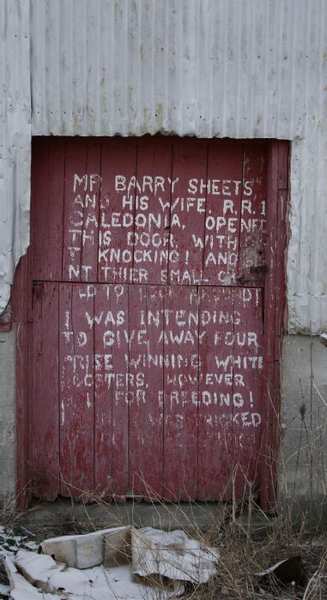 MR BARRY SHEETS
AND HIS WIFE, R.R.1
CALEDONIA, OPENED
THIS DOOR WITH
T KNOCKING! AND
NT THIER SMALL
TO
I WAS INTENDING
TO GIVE AWAY FOUR
WINNING WHITE
ROOSTERS, HOWEVER
FOR BREEDING!
WAS